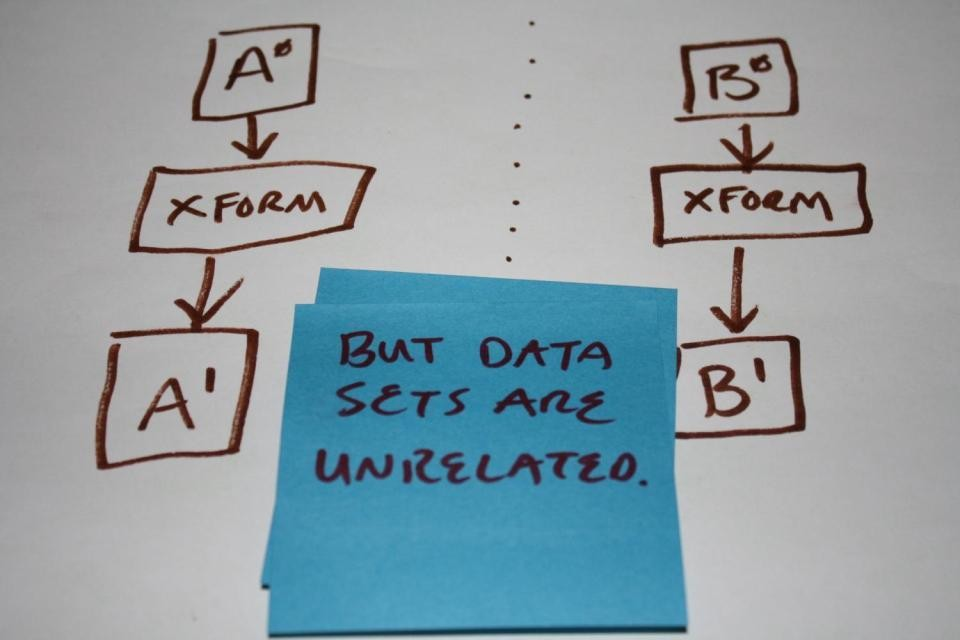 A⁰
B⁰
XFORM
XFORM
A'
B'
BUT DATA
SETS ARE
UNRELATED.